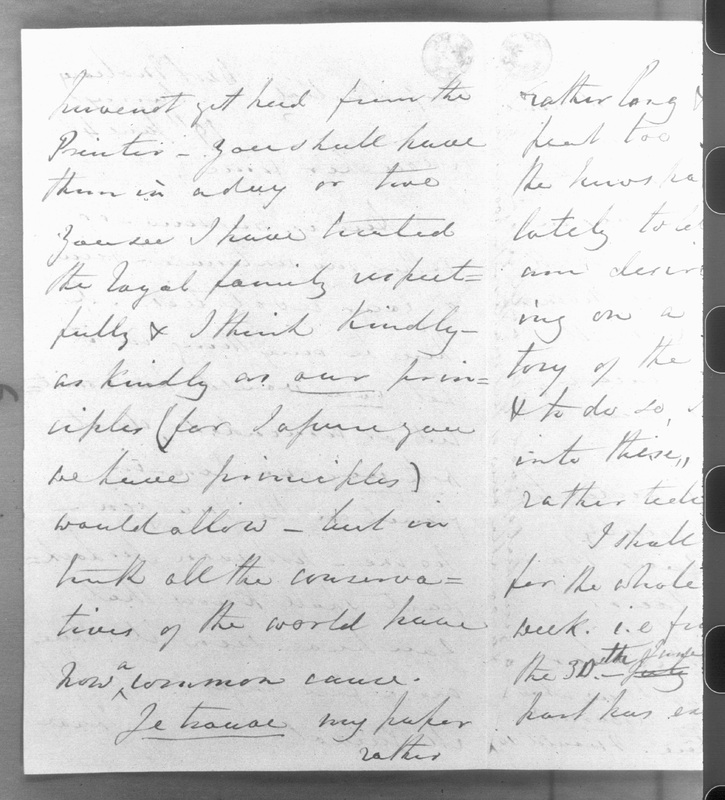 have not yet had from the
Printer – You shall have
them in a day or two
You see I have treated
the Royal family respect=
fully & I think kindly –
as kindly as our prin=
ciples (for I assure you
we have principles)
would allow – but in
truth all the conserva=
tives of the world have
now a common cause.
Je trouve my paper
rather
rather long &
feat too
the
lately to
am desir
ing on a
tory of the
& to do so,
into these,,
rather tedi
I shall
for the whole
week. i.e fr
the 30.th – July June
part has ex